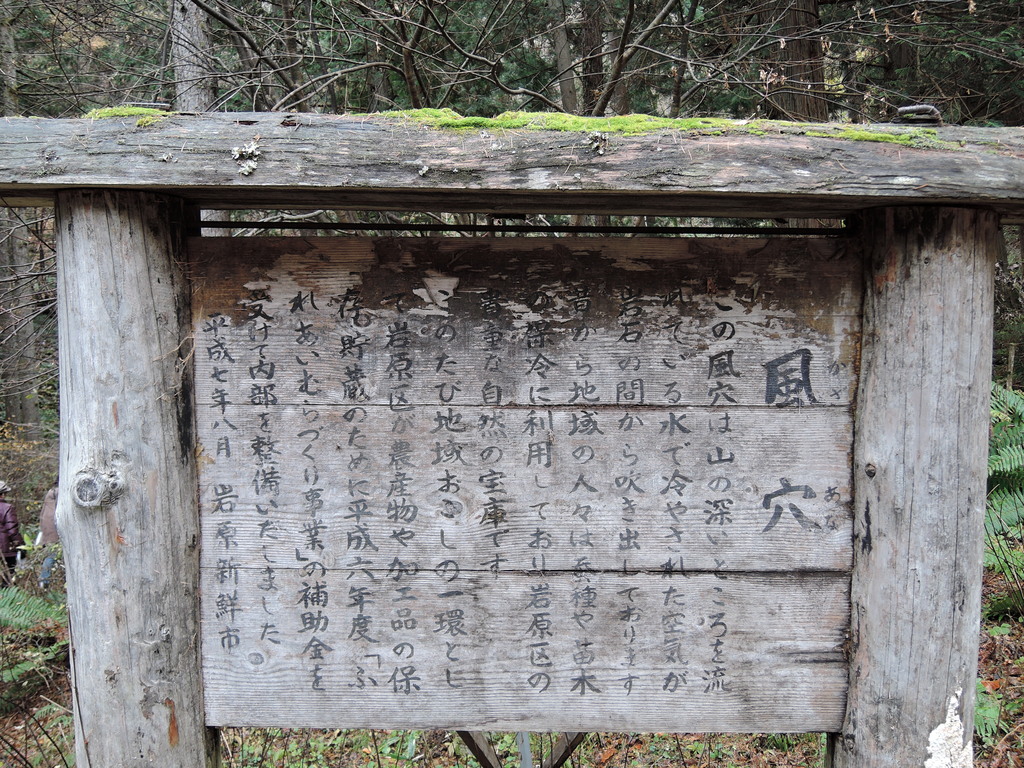 風穴
かざ あな
この風穴は山の深いところを流
れている水で冷やされた空気が
岩石の間から吹き出しております
昔から地域の人々は蚕種や苗木
の保冷に利用しており岩原区の
貴重な自然の宝庫です
このたび地域おこしの一環とし
て岩原区が農産物や加工品の保
存、貯蔵のために平成六年度「ふ
れあいむらづくり事業」の補助金を
受けて内部を整備いたしました。
平成七年八月 岩原新鮮市